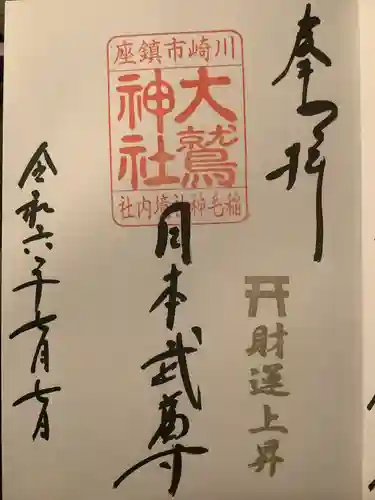 奉拝
川崎市鎮座
大鷲
神社
稲毛神社境内社
日本武尊
財運上昇
令和六年七月七日